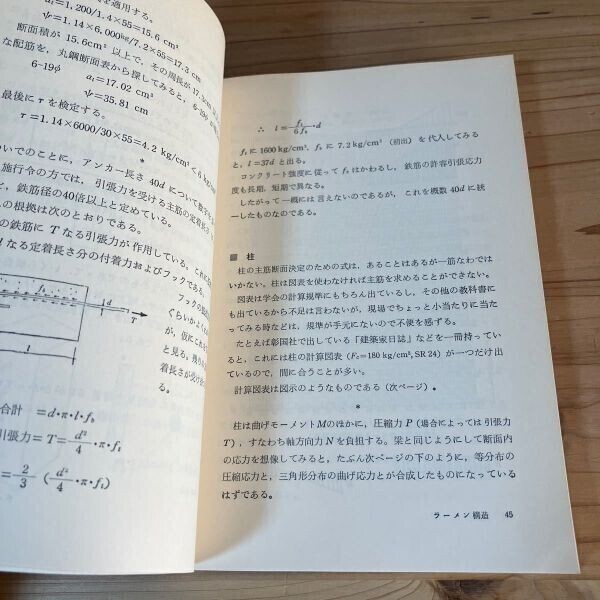 を適用する。
a₁=1,200/1.4×55=15.6 cm²
ψ=1.14×6,000kg/7.2×55=17.3 cm
断面積が 15.6cm² 以上で、その周長が 17.3cm
な配筋を、丸鋼断面表から探してみると、6-19φ
6-19φ a₁=17.02 cm²
ψ=35.81 cm
最後に τ を検定する。
τ=1.14×6000/30×55=4.2 kg/cm²<6 kg/cm²
*
ついでのことに、アンカー長さ 40d について
施行令の方では、引張力を受ける主筋の定着長さ
を、鉄筋径の40倍以上と定めている。
の根拠は次のとおりである。
の鉄筋に T なる引張力が作用している。これに
l なる定着長さ分の付着力およびフックである。
フックの
ぐらいかよく
が、仮にこれを
と見る。残りの
着長さが受け
る。
fb
d
T
l
合計 =d・π・l・fb
引張力=T=d²/4・π・ft
= 2/3 (d²/4・π・ft)
∴ l=ft/6fb・d
ft に 1600 kg/cm², fb に 7.2 kg/cm² (初出) を代入してみる
と、l=37d と出る。
コンクリート強度に従って fb はかわるし、鉄筋の許容引張応力
度も長期、短期で異なる。
したがって一概には言えないのであるが、これを概数 40d に統
一したものなのである。
■ 柱
柱の主筋断面決定のための式は、あることはあるが一筋なわでは
いかない。柱は図表を使わなければ主筋を求めることができない。
図表は学会の計算規準にもちろん出ているし、その他の教科書に
も出ているから不足は言わないが、現場でちょっと小当たりに当た
ってみる時などは、規準が手元にないので不便を感ずる。
たとえば彰国社で出している「建築家日誌」などを一冊持ってい
ると、これには柱の計算図表 (Fc=180 kg/cm³, SR 24) が一つだけ出
ているので、間に合うことが多い。
計算図表は図示のようなものである (次ページ)。
*
柱は曲げモーメントMのほかに、圧縮力 P (場合によっては引張力
T)、すなわち軸方向力 N を負担する。梁と同じようにして断面内
の応力を想像してみると、たぶん次ページの下のように、等分布の
圧縮応力と、三角形分布の曲げ応力とが合成したものになっている
はずである。
ラーメン構造 45